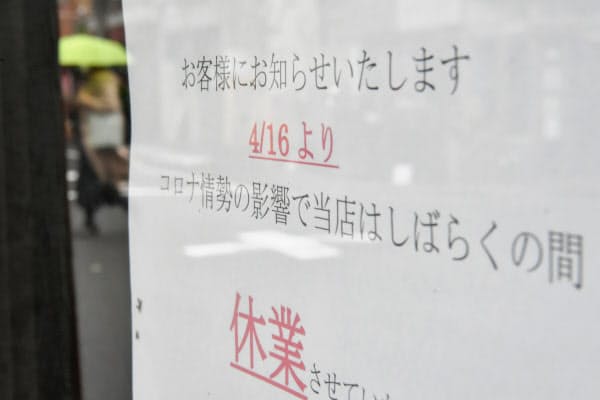 お客様にお知らせいたします
4/16 より
コロナ情勢の影響で当店はしばらくの間
休業させてい